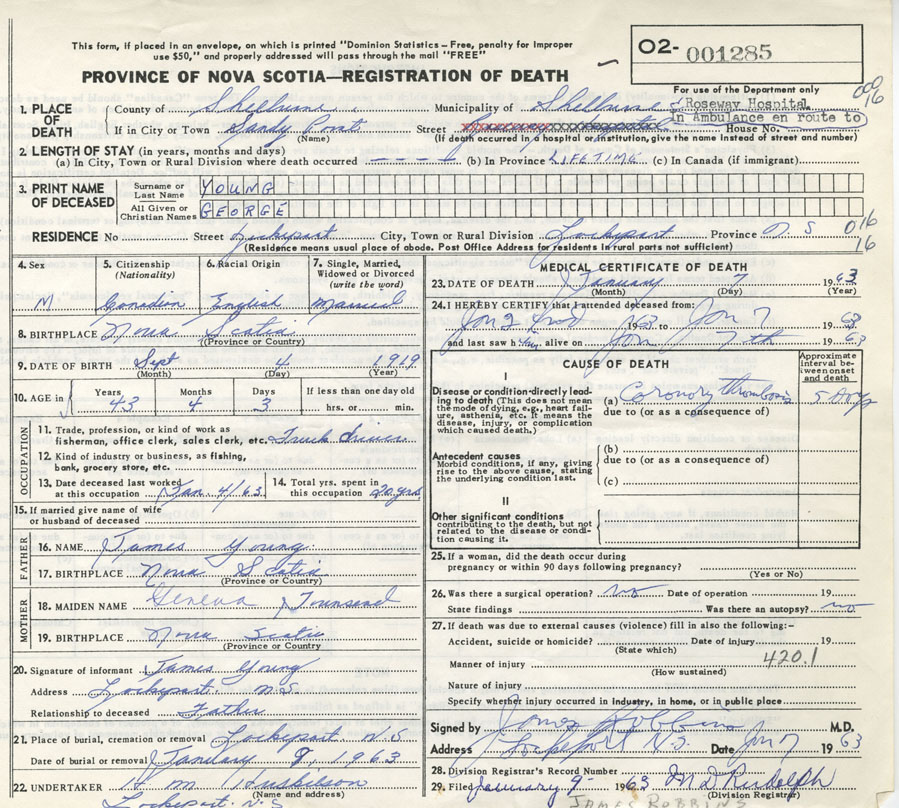 This form, if placed in an envelope, on which is printed "Dominion Statistics – Free, penalty for improper
use $50," and properly addressed will pass through the mail "FREE"
O2- 001285
PROVINCE OF NOVA SCOTIA—REGISTRATION OF DEATH
For use of the Department only
1. PLACE OF DEATH { County of Shelburne Municipality of Shelburne Roseway Hospital 000 16
If in City or Town Sandy Point (Name) Street In Ambulance en route to House No.
(If death occurred in a hospital or institution, give the name instead of street and number)
2. LENGTH OF STAY (in years, months and days)
(a) In City, Town or Rural Division where death occurred – – – – (b) In Province LIFETIME (c) In Canada (if immigrant)
3. PRINT NAME OF DECEASED { Surname or Last Name YOUNG
All Given or Christian Names GEORGE
RESIDENCE No Street Lockeport City, Town or Rural Division Lockeport Province N.S 016
(Residence means usual place of abode. Post Office Address for residents in rural parts not sufficient) 16
4. Sex M
5. Citizenship (Nationality) Canadian
6. Racial Origin English
7. Single, Married, Widowed or Divorced (write the word) Married
8. BIRTHPLACE Nova Scotia
(Province or Country)
9. DATE OF BIRTH Sept 4 1919
(Month) (Day) (Year)
10. AGE in { Years 43 Months 4 Days 3 If less than one day old hrs. or min.
OCCUPATION
11. Trade, profession, or kind of work as
fisherman, office clerk, sales clerk, etc. Truck driver
12. Kind of industry or business, as fishing,
bank, grocery store, etc.
13. Date deceased last worked at this occupation Jan. 4/63
14. Total yrs. spent in this occupation 20 yrs
15. If married give name of wife
or husband of deceased
FATHER
16. NAME James Young
17. BIRTHPLACE Nova Scotia
(Province or Country)
MOTHER
18. MAIDEN NAME Geneva Townsend
19. BIRTHPLACE Nova Scotia
(Province or Country)
20. Signature of informant James Young
Address Lockeport. N.S
Relationship to deceased Father
21. Place of burial, cremation or removal Lockeport, N.S
Date of burial or removal January 9, 1963
22. UNDERTAKER H M Huskilson
(Name and address)
Lockeport. N.S
MEDICAL CERTIFICATE OF DEATH
23. DATE OF DEATH January 7 1963
(Month) (Day) (Year)
24. I HEREBY CERTIFY that I attended deceased from:
Jan 2 1963 to Jan 7 1963
and last saw him alive on Jan 7th 1963
CAUSE OF DEATH
Approximate interval between onset and death
I
Disease or condition directly leading to death (This does not mean the mode of dying, e.g., heart failure, asthenia, etc. It means the disease, injury, or complication which caused death.)
(a) Coronary thrombosis 5 days
due to (or as a consequence of)
Antecedent causes
Morbid conditions, if any, giving rise to the above cause, stating the underlying condition last.
(b)
due to (or as a consequence of)
(c)
II
Other significant conditions
contributing to the death, but not related to the disease or condition causing it.
25. If a woman, did the death occur during
pregnancy or within 90 days following pregnancy?
(Yes or No)
26. Was there a surgical operation? no Date of operation 19
State findings Was there an autopsy? no
27. If death was due to external causes (violence) fill in also the following:–
Accident, suicide or homicide? Date of injury 19
(State which)
Manner of injury 420.1
(How sustained)
Nature of injury
Specify whether injury occurred in industry, in home, or in public place
Signed by James Robbins M.D.
Address Lockeport N.S. Date Jan 7 1963
28. Division Registrar's Record Number
29. Filed January 9- 1963 M D Rudolph
(Division Registrar)
JAMES ROBBINS